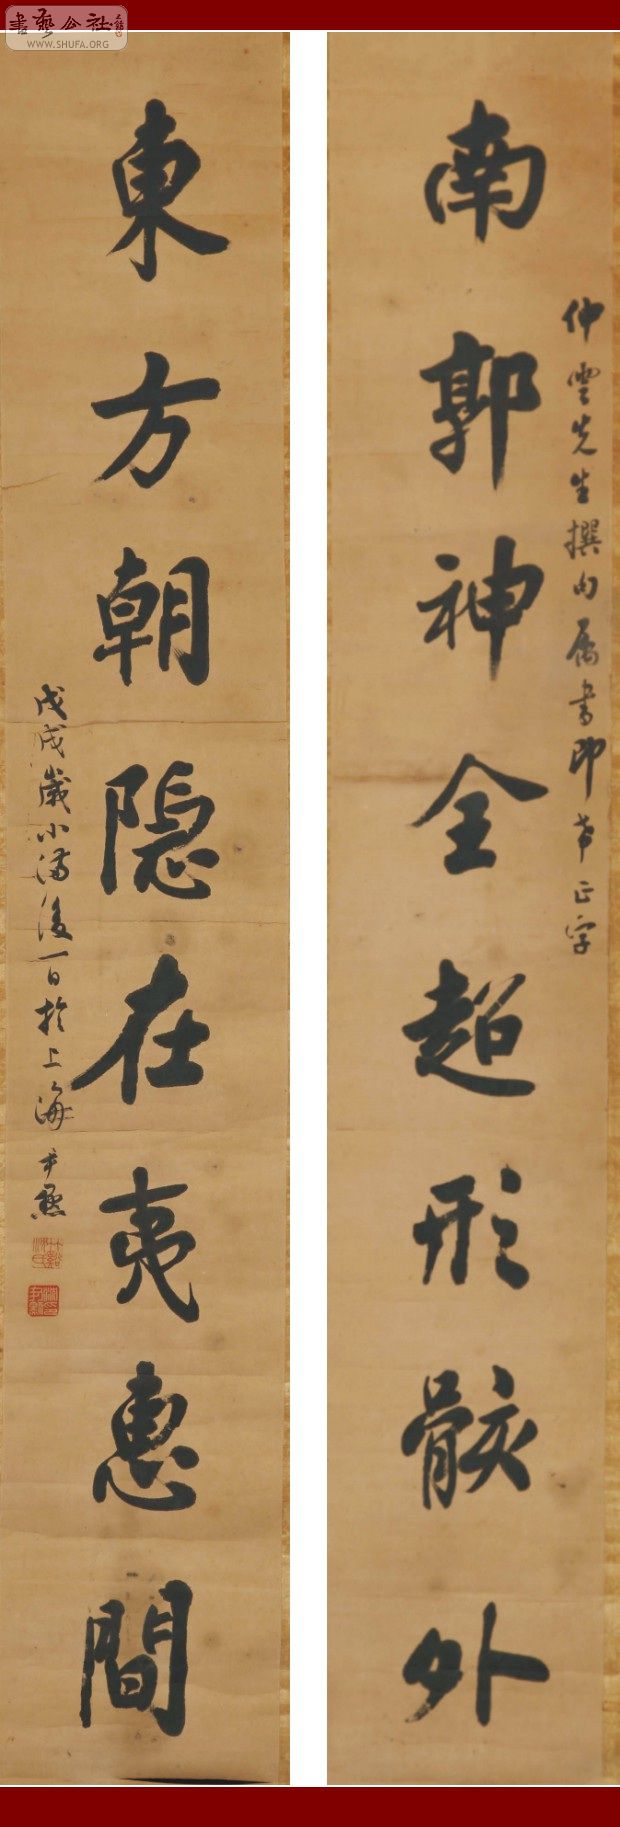 書藝公社
WWW.SHUFA.ORG
南郭神全超形骸外
仲雲先生撰句属書即希正字
東方朝隐在夷惠間
戊戌歲小满後一日於上海 尹默